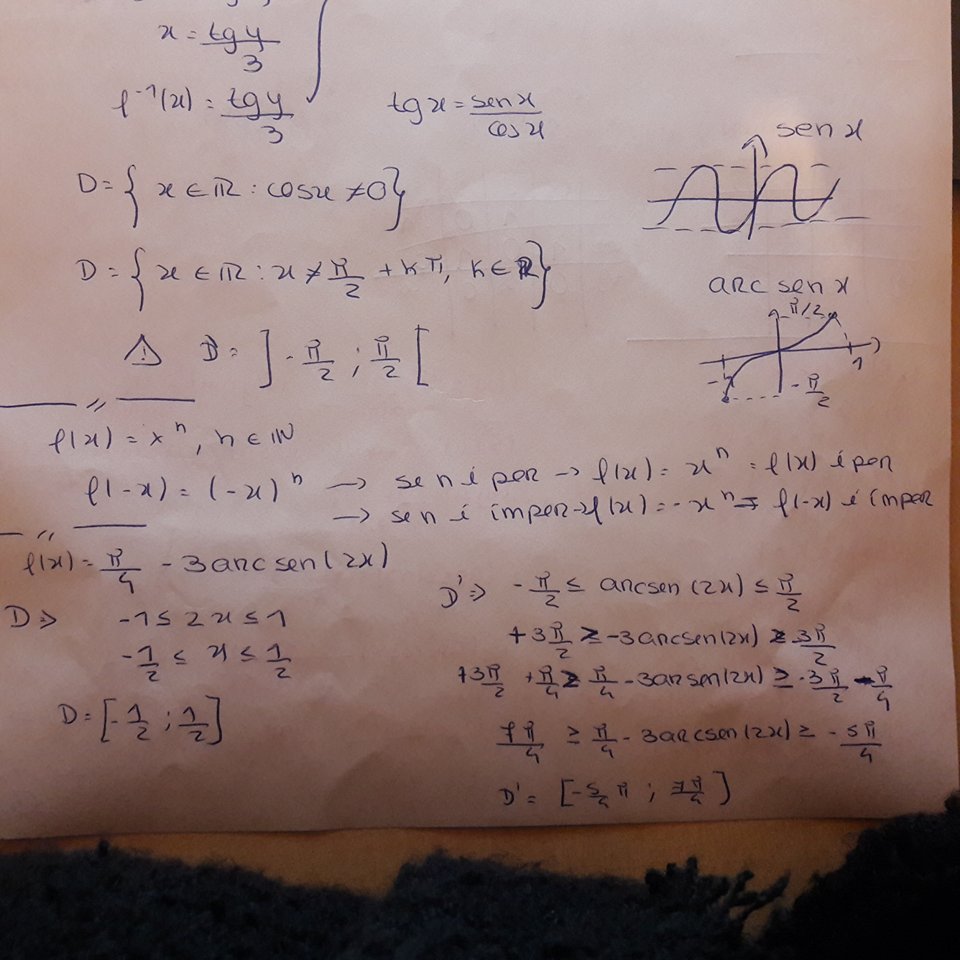 x = tg y / 3
f⁻¹(x) = tg y / 3
tg x = sen x / cos x
sen x
D = { x ∈ ℝ : cos x ≠ 0 }
D = { x ∈ ℝ : x ≠ π/2 + kπ, k ∈ ℝ }
arc sen x
π/2
1
-1
-π/2
⚠ D = ] -π/2 ; π/2 [
f(x) = xⁿ, n ∈ ℕ
f(-x) = (-x)ⁿ → se n é par → f(x) = xⁿ = f(x) é par
→ se n é ímpar → f(x) = -xⁿ = f(-x) é ímpar
f(x) = π/4 - 3 arc sen(2x)
D ⇒ -1 ≤ 2x ≤ 1
-1/2 ≤ x ≤ 1/2
D = [-1/2 ; 1/2]
D' ⇒ -π/2 ≤ arcsen (2x) ≤ π/2
+3π/2 ≥ -3 arcsen(2x) ≥ 3π/2
+3π/2 + π/4 ≥ π/4 - 3arsen(2x) ≥ -3π/2 - π/4
7π/4 ≥ π/4 - 3arcsen(2x) ≥ -5π/4
D' = [-5/4 π ; 7π/4]